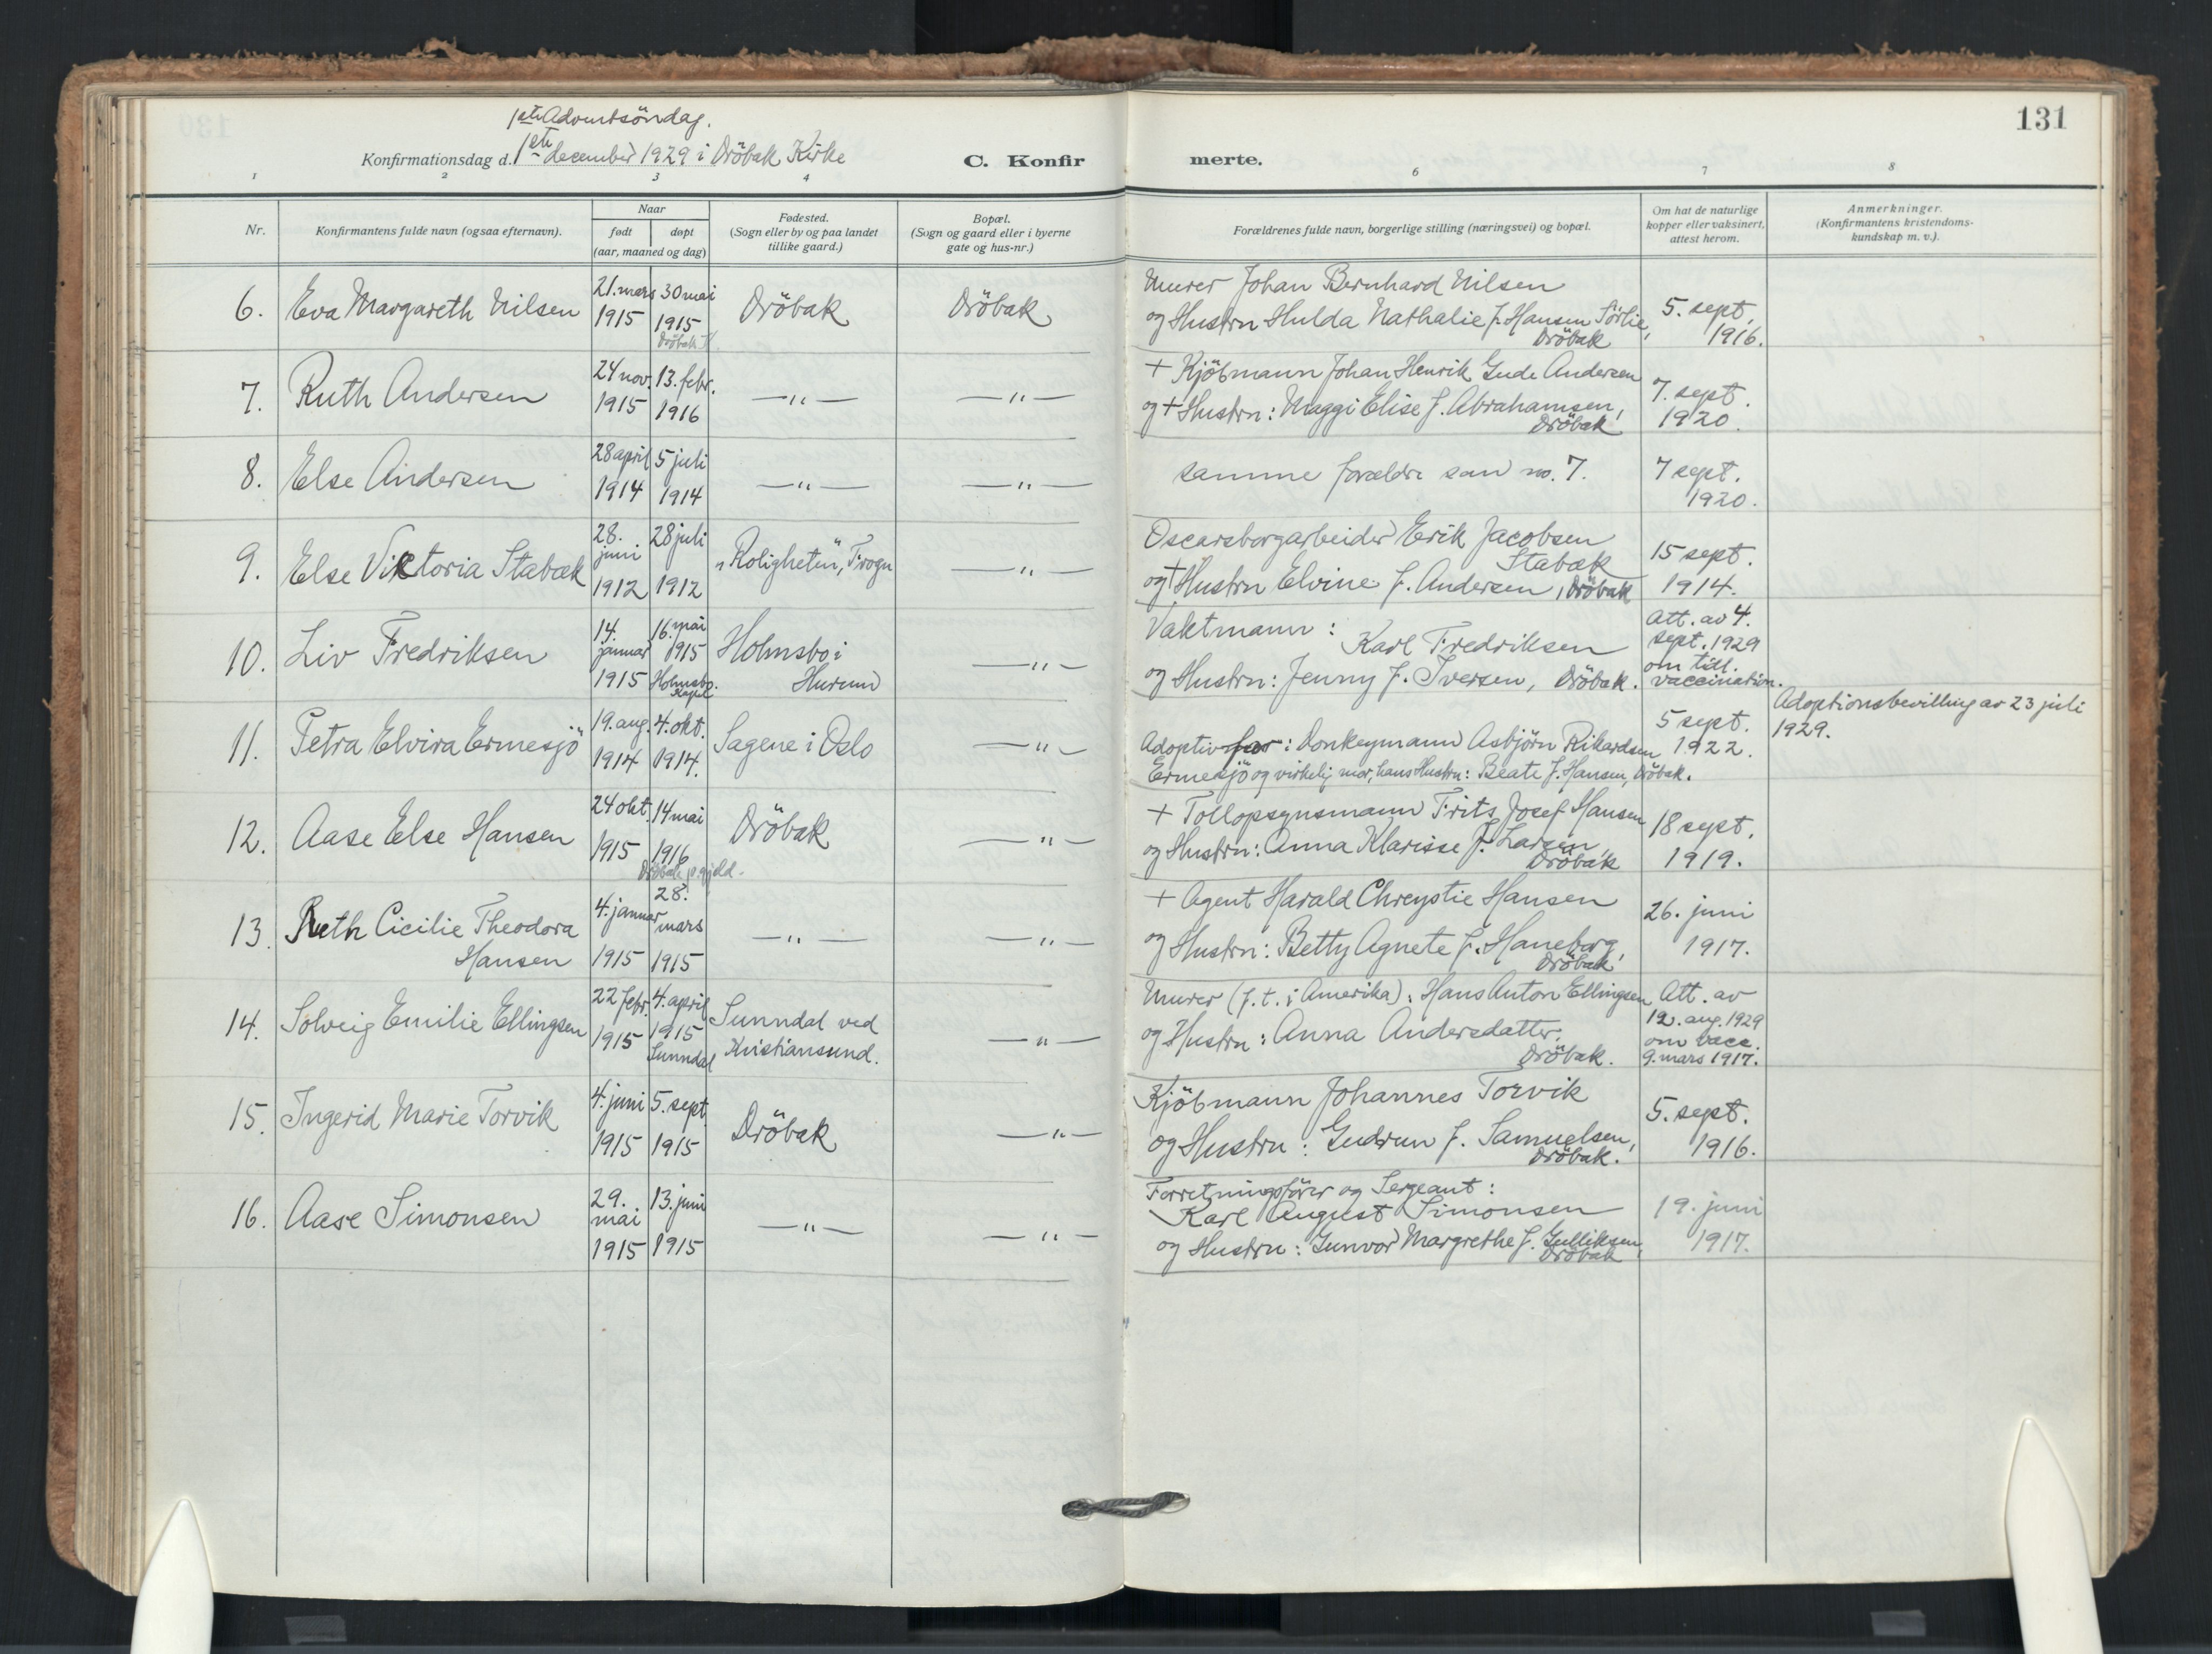 1ste Adventsöndag.
Konfirmationsdag d. 1ste december 1929 i Dröbak Kirke
C. Konfir
merte.
131
1 2 3 4 6 7 8
Nr.
Konfirmantens fulde navn (ogsaa efternavn).
Naar
født døpt
(aar, maaned og dag)
Fødested.
(Sogn eller by og paa landet
tillike gaard.)
Bopæl.
(Sogn og gaard eller i byerne
gate og hus-nr.)
Forældrenes fulde navn, borgerlige stilling (næringsvei) og bopæl.
Om hat de naturlige
kopper eller vaksinert,
attest herom.
Anmerkninger.
(Konfirmantens kristendoms-
kundskap m. v.).
6. Eva Margareth Nilsen
21. mars 1915
30 mai 1915
Dröbak
Dröbak
Dröbak
Murer Johan Bernhard Nilsen
og Hustru Hulda Nathalie f. Hansen Sörlie,
Dröbak
5. sept.
1916.
7. Ruth Andersen
24 nov. 1915
13. febr. 1916
—"—
—"—
+ Kjöbmann Johan Henrik Gude Andersen
og + Hustru: Maggi Elise f. Abrahamsen,
Dröbak
7. sept.
1920.
8. Else Andersen
28 april 1914
5 juli 1914
—"—
—"—
samme forældre som no. 7.
7 sept.
1920.
9. Else Viktoria Stabæk
28. juni 1912
28 juli 1912
"Roligheten", Frogn
—"—
Oscarsborgarbeider Erik Jacobsen
Stabæk
og + Hustru Elvine f. Andersen, Dröbak
15 sept.
1914.
10. Liv Fredriksen
14. januar 1915
16. mai 1915
Holmsbo. Kapel
Holmsbo i
Hurum
—"—
Vaktmann:
Karl Fredriksen
og Hustru: Jenny f. Iversen, Dröbak.
Att. av 4.
sept. 1929
om tidl.
vaccination.
11. Petra Elvira Ermesjö
19. aug. 1914
4. okt. 1914.
Sagene i Oslo
—"—
Adoptivfar: Donkeymann Asbjörn Rikardsen
Ermesjö og virkelig mor, hans Hustru: Beate f. Hansen, Dröbak.
5 sept.
1922.
Adoptionsbevilling av 23 juli
1929.
12. Aase Else Hansen
24 okt. 1915
14 mai 1916
Dröbak p.gjeld.
Dröbak
—"—
+ Tollopsynsmann Frits Josef Hansen
og Hustru: Anna Klarisse f. Larsen,
Dröbak
18 sept.
1919.
13. Ruth Cicilie Theodora
Hansen
4. januar 1915
28. mars 1915
—"—
—"—
+ Agent Harald Chreystie Hansen
og Hustru: Betty Agnete f. Haneborg,
Dröbak
26. juni
1917.
14. Solveig Emilie Ellingsen
22 febr. 1915
4. april 1915
Sunndal
Sunndal ved
Kristiansund.
—"—
Murer (f. t. i Amerika): Hans Anton Ellingsen
og Hustru: Anna Andersdatter,
Dröbak.
Att. av
12. aug. 1929
om vacc.
9. mars 1917.
15. Ingerid Marie Torvik
4. juni 1915
5. sept. 1915
Dröbak
—"—
Kjöbmann Johannes Torvik
og Hustru: Gudrun f. Samuelsen,
Dröbak.
5. sept.
1916.
16. Aase Simonsen
29. mai 1915
13. juni 1915
—"—
—"—
Forretningsförer og Sergeant:
Karl August Simonsen
og Hustru: Gunvor Margrethe f. Gulliksen,
Dröbak
19. juni
1917.